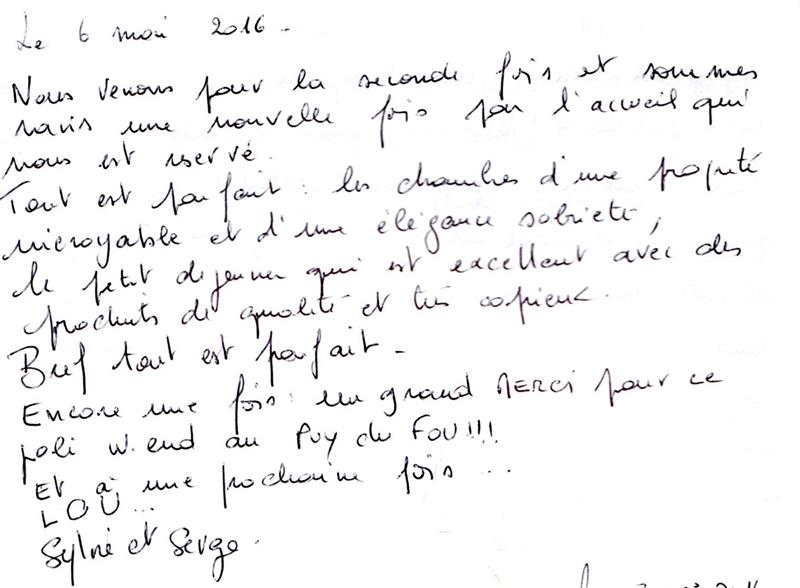 Le 6 mai 2016.
Nous venons pour la seconde fois et sommes
ravis une nouvelle fois par l'accueil qui
nous est réservé.
Tout est parfait : les chambres d'une propreté
incroyable et d'une élégance sobrieté,
le petit dejeuner qui est excellent avec des
produits de qualité et très copieux.
Bref tout est parfait -
Encore une fois : un grand MERCI pour ce
joli w.end au Puy du Fou!!!
Et à une prochaine fois ...
LOU ...
Sylvie et Serge.